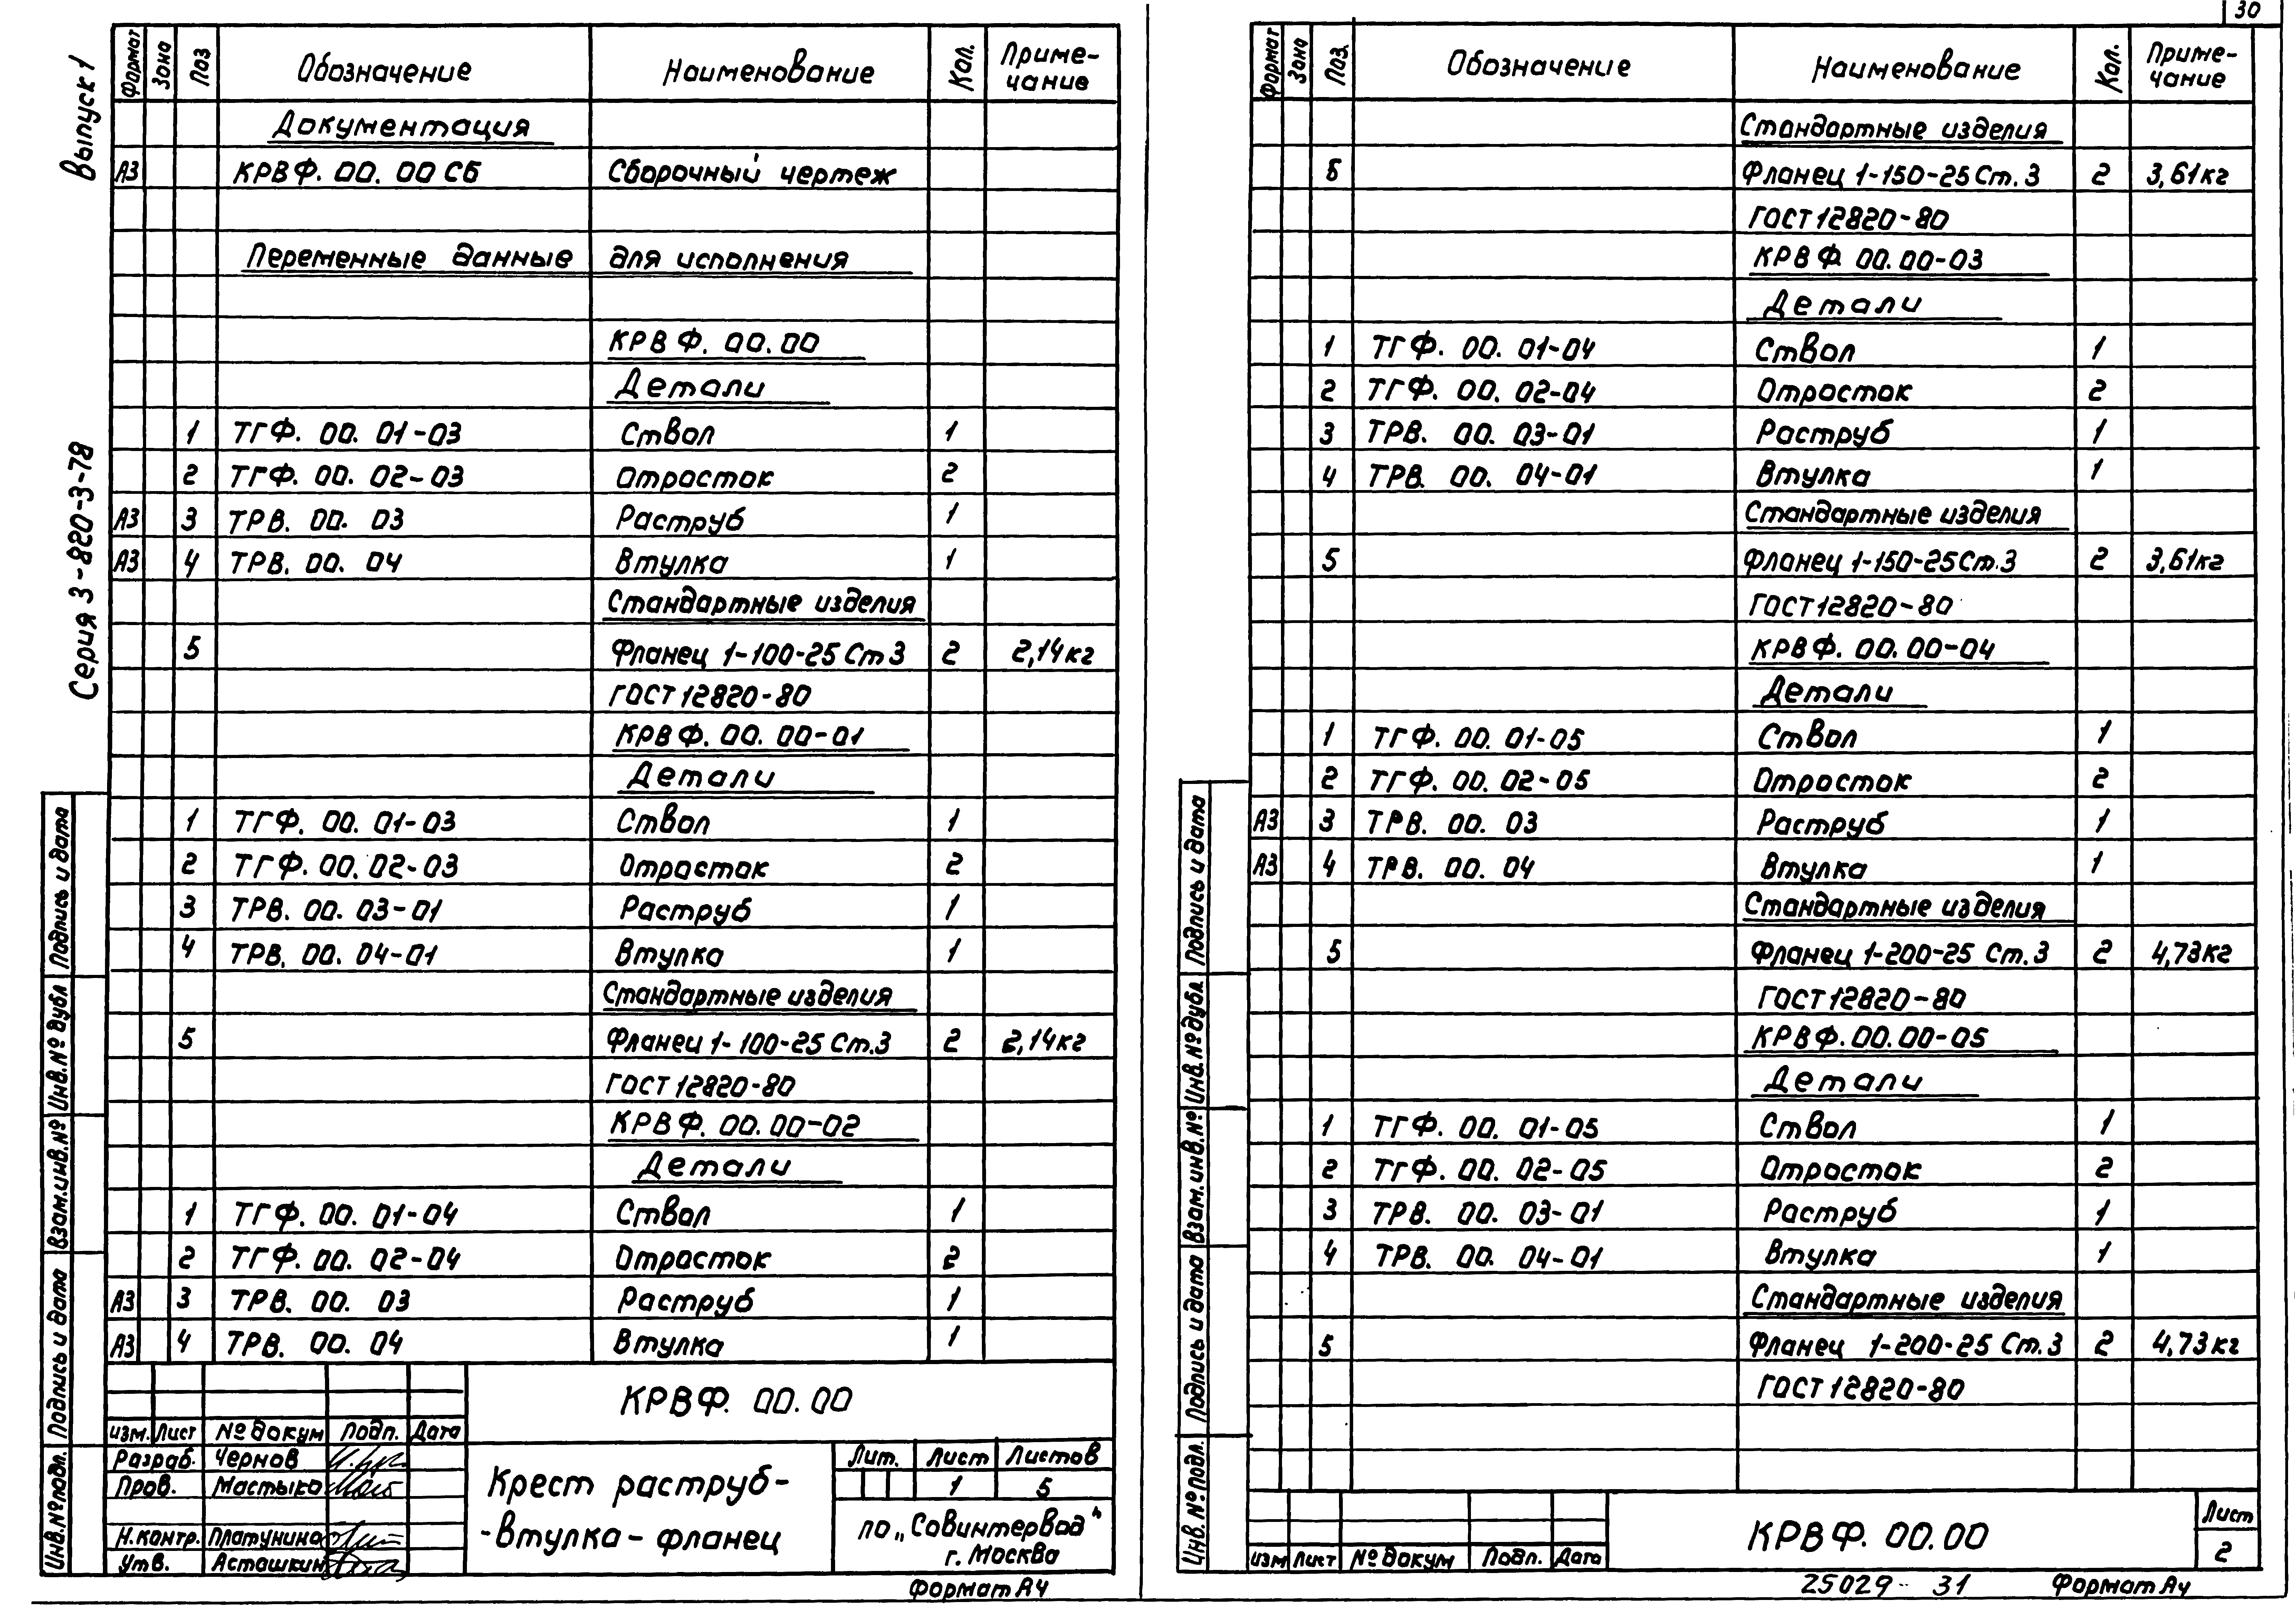 Выпуск 1
Серия 3-820-3-78
Формат Зона Поз Обозначение Наименование Кол. Приме-
чание
Документация
А3 КРВФ. 00. 00 СБ Сборочный чертеж
Переменные данные для исполнения
КРВФ. 00.00
Детали
1 ТГФ. 00. 01-03 Ствол 1
2 ТГФ. 00. 02-03 Отросток 2
А3 3 ТРВ. 00. 03 Раструб 1
А3 4 ТРВ. 00. 04 Втулка 1
Стандартные изделия
5 Фланец 1-100-25 Ст 3 2 2,14кг
ГОСТ 12820-80
КРВФ. 00. 00-01
Детали
1 ТГФ. 00. 01-03 Ствол 1
2 ТГФ. 00. 02-03 Отросток 2
3 ТРВ. 00. 03-01 Раструб 1
4 ТРВ. 00. 04-01 Втулка 1
Стандартные изделия
5 Фланец 1-100-25 Ст.3 2 2,14кг
ГОСТ 12820-80
КРВФ. 00. 00-02
Детали
1 ТГФ. 00. 01-04 Ствол 1
2 ТГФ. 00. 02-04 Отросток 2
А3 3 ТРВ. 00. 03 Раструб 1
А3 4 ТРВ. 00. 04 Втулка 1
Подпись и дата
Инв.№ дубл
Взам.инв.№
Подпись и дата
Инв.№ подл.
КРВФ. 00.00
изм. Лист № докум Подп. Дата
Разраб. Чернов
Пров. Мастыко
Н.контр. Платунина
Утв. Асташкин
Крест раструб-
-втулка-фланец
Лит. Лист Листов
1 5
по „Совинтервод"
г. Москва
Формат А4
30
Формат Зона Поз. Обозначение Наименование Кол. Приме-
чание
Стандартные изделия
5 Фланец 1-150-25 Ст.3 2 3,61кг
ГОСТ 12820-80
КРВФ 00.00-03
Детали
1 ТГФ. 00. 01-04 Ствол 1
2 ТГФ. 00. 02-04 Отросток 2
3 ТРВ. 00. 03-01 Раструб 1
4 ТРВ. 00. 04-01 Втулка 1
Стандартные изделия
5 Фланец 1-150-25 Ст.3 2 3,61кг
ГОСТ 12820-80
КРВФ. 00.00-04
Детали
1 ТГФ. 00. 01-05 Ствол 1
2 ТГФ. 00. 02-05 Отросток 2
А3 3 ТРВ. 00. 03 Раструб 1
А3 4 ТРВ. 00. 04 Втулка 1
Стандартные изделия
5 Фланец 1-200-25 Ст.3 2 4,73кг
ГОСТ 12820-80
КРВФ. 00.00-05
Детали
1 ТГФ. 00. 01-05 Ствол 1
2 ТГФ. 00. 02-05 Отросток 2
3 ТРВ. 00. 03-01 Раструб 1
4 ТРВ. 00. 04-01 Втулка 1
Стандартные изделия
5 Фланец 1-200-25 Ст.3 2 4,73кг
ГОСТ 12820-80
Подпись и дата
Инв.№ дубл.
Взам.инв.№
Подпись и дата
Инв.№ подл.
изм Лист № докум Подп. Дата
КРВФ. 00.00
Лист
2
25029 - 31 Формат А4